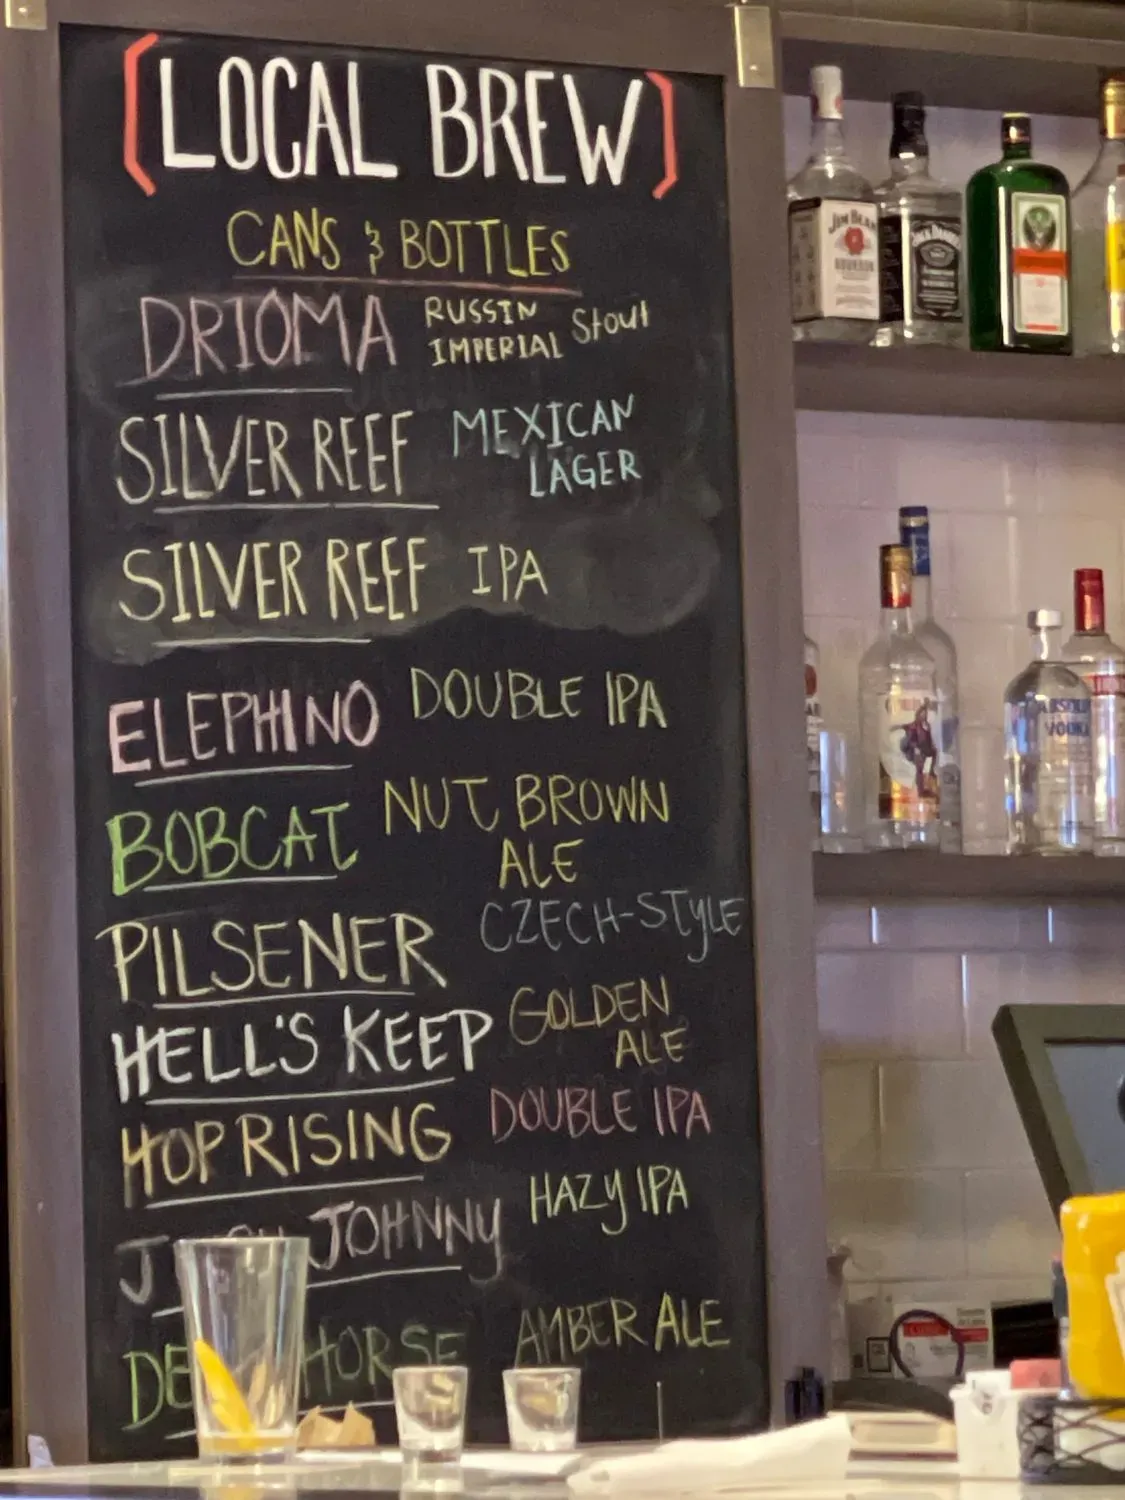 [LOCAL BREW]
CANS & BOTTLES
DRIOMA RUSSIN IMPERIAL Stout
SILVER REEF MEXICAN LAGER
SILVER REEF IPA
ELEPHINO DOUBLE IPA
BOBCAT NUT BROWN ALE
PILSENER CZECH-STYLE
HELL'S KEEP GOLDEN ALE
HOP RISING DOUBLE IPA
JOHNNY HAZY IPA
HORSE AMBER ALE
JIM BEAM
BOURBON
JACK DANIEL'S
ABSOLUT
VODKA